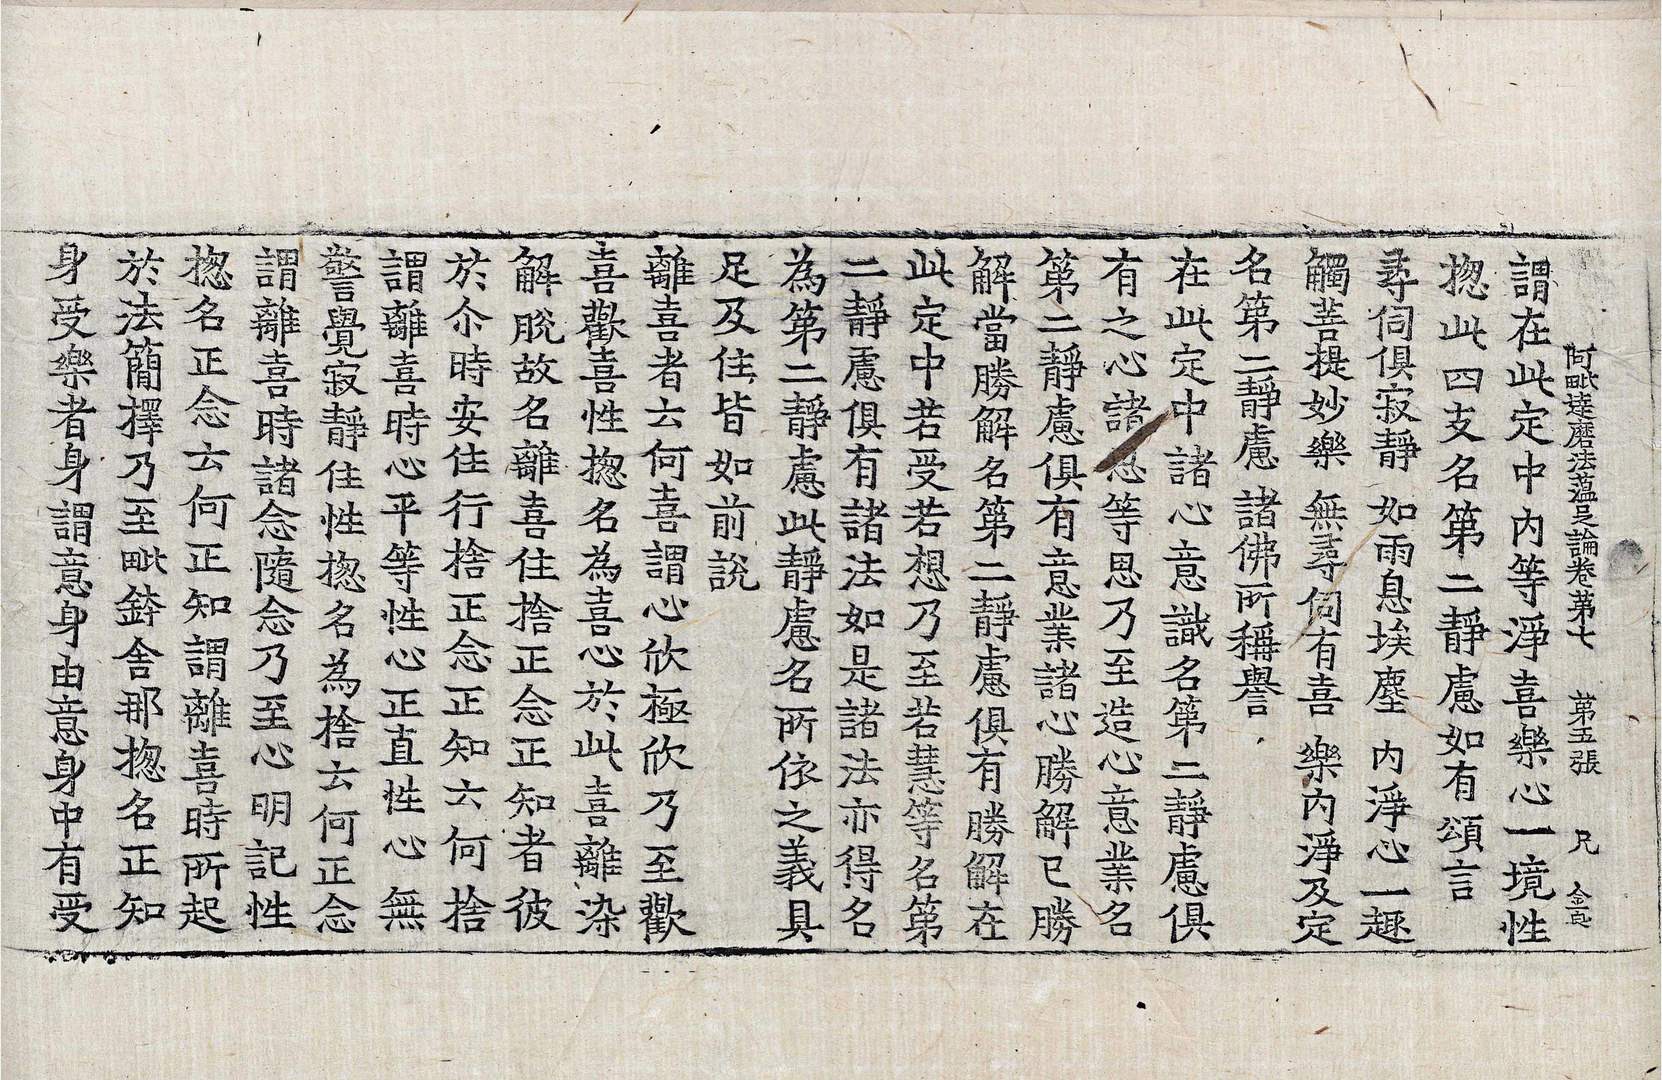 阿毗達磨法蘊足論卷第七 第五張 兄
謂在此定中內等淨喜樂心一境性
揔此四支名第二靜慮如有頌言
尋伺俱寂靜 如雨息埃塵 內淨心一趣
觸菩提妙樂 無尋伺有喜 樂內淨及定
名第二靜慮 諸佛所稱譽
在此定中諸心意識名第二靜慮俱
有之心諸思等思乃至造心意業名
第二靜慮俱有意業諸心勝解已勝
解當勝解名第二靜慮俱有勝解在
此定中若受若想乃至若慧等名第
二靜慮俱有諸法如是諸法亦得名
為第二靜慮此靜慮名所依之義具
足及住皆如前說
離喜者云何喜謂心欣極欣乃至歡
喜歡喜性揔名為喜心於此喜離染
解脫故名離喜住捨正念正知者彼
於尒時安住行捨正念正知云何捨
謂離喜時心平等性心正直性心無
警覺寂靜住性揔名為捨云何正念
謂離喜時諸念隨念乃至心明記性
揔名正念云何正知謂離喜時所起
於法簡擇乃至毗鉢舍那揔名正知
身受樂者身謂意身由意身中有受